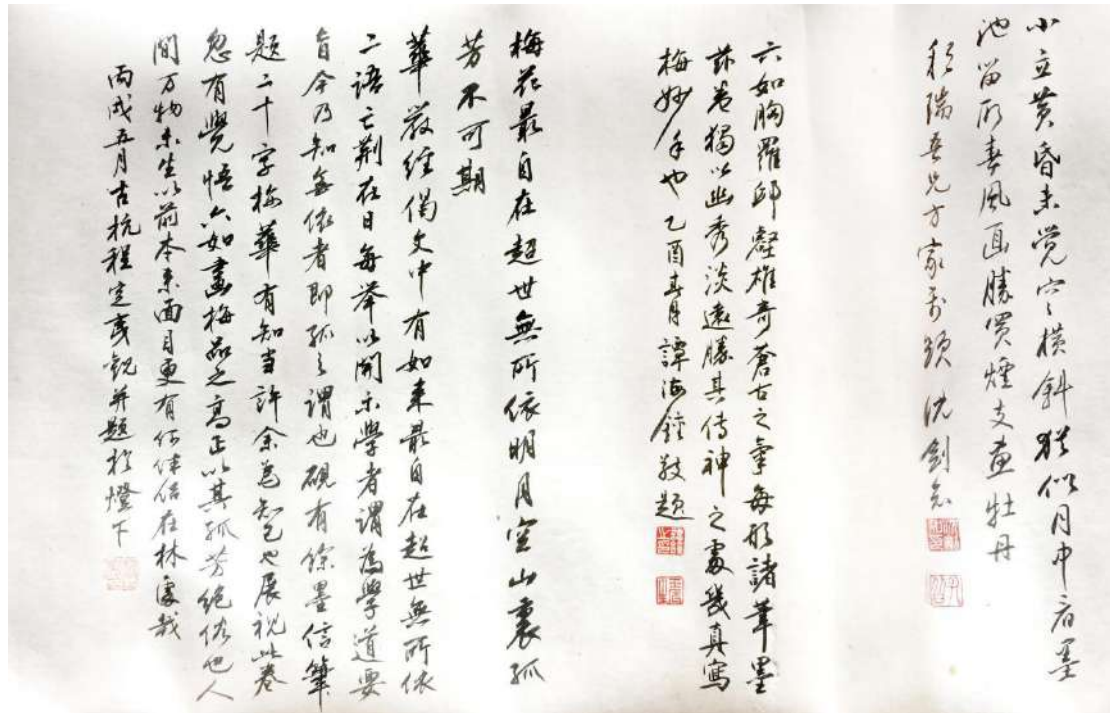 小立黄昏未觉寒横斜犹似月中看墨
池留取春风面胜买烟支画牡丹
稚陶吾兄方家属题 沈剑知
六如胸罗邱壑雄奇苍古之气每形诸笔墨
玆卷独以幽秀淡远胜其传神之处几真写
梅妙手也 乙酉春月 谭海钟敬题
梅花最自在超世無所依明月空山裏孤
芳不可期
華嚴經偈文中有如来最自在超世無所依
二語亡荆在日每举以開示學者謂為學道要
旨今乃知無依者即孤之謂也硯有餘墨信筆
題二十字梅華有知當許余為知己也展視此卷
忽有覺悟六如畫梅品之高正以其孤芳絕俗也人
間万物未生以前本来面目更有何体佔在林處哉
丙戌五月古杭程定彧觀并題於燈下